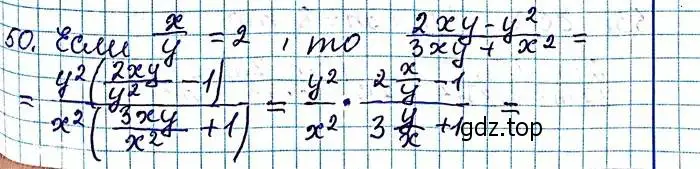 50. Если x/y = 2, то (2xy - y²)/(3xy + x²) =
= (y²(2xy/y² - 1))/(x²(3xy/x² + 1)) = y²/x² · (2 x/y - 1)/(3 y/x + 1) =
gdz.top